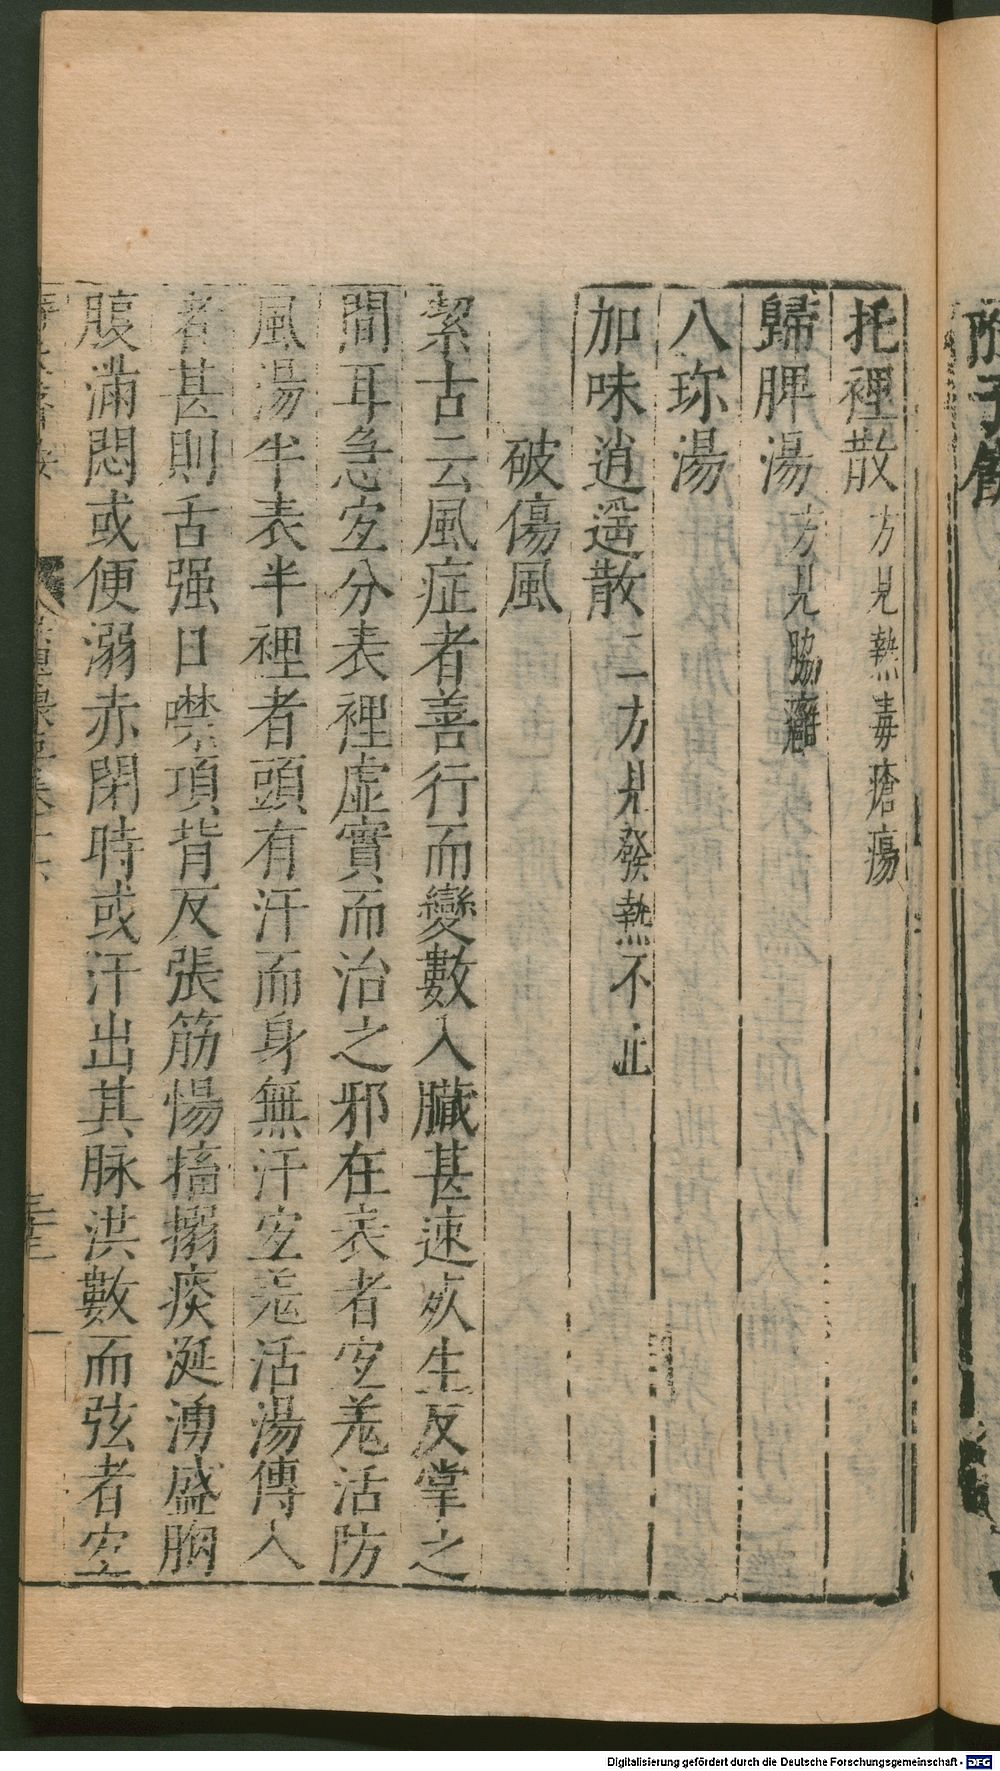 托裡散方見熱毒瘡瘍
歸脾湯方見脇癰
八珎湯
加味逍遥散二方見發熱不止
破傷風
絜古云風症者善行而變數入臟甚速死生反掌之
間耳急宜分表裡虛實而治之邪在表者宜羗活防
風湯半表半裡者頭有汗而身無汗宜羗活湯傳入
者甚則舌强口噤項背反張筋惕搐搦痰涎湧盛胸
腹滿悶或便溺赤閉時或汗出其脉洪數而弦者宜
Digitalisierung gefördert durch die Deutsche Forschungsgemeinschaft - DFG